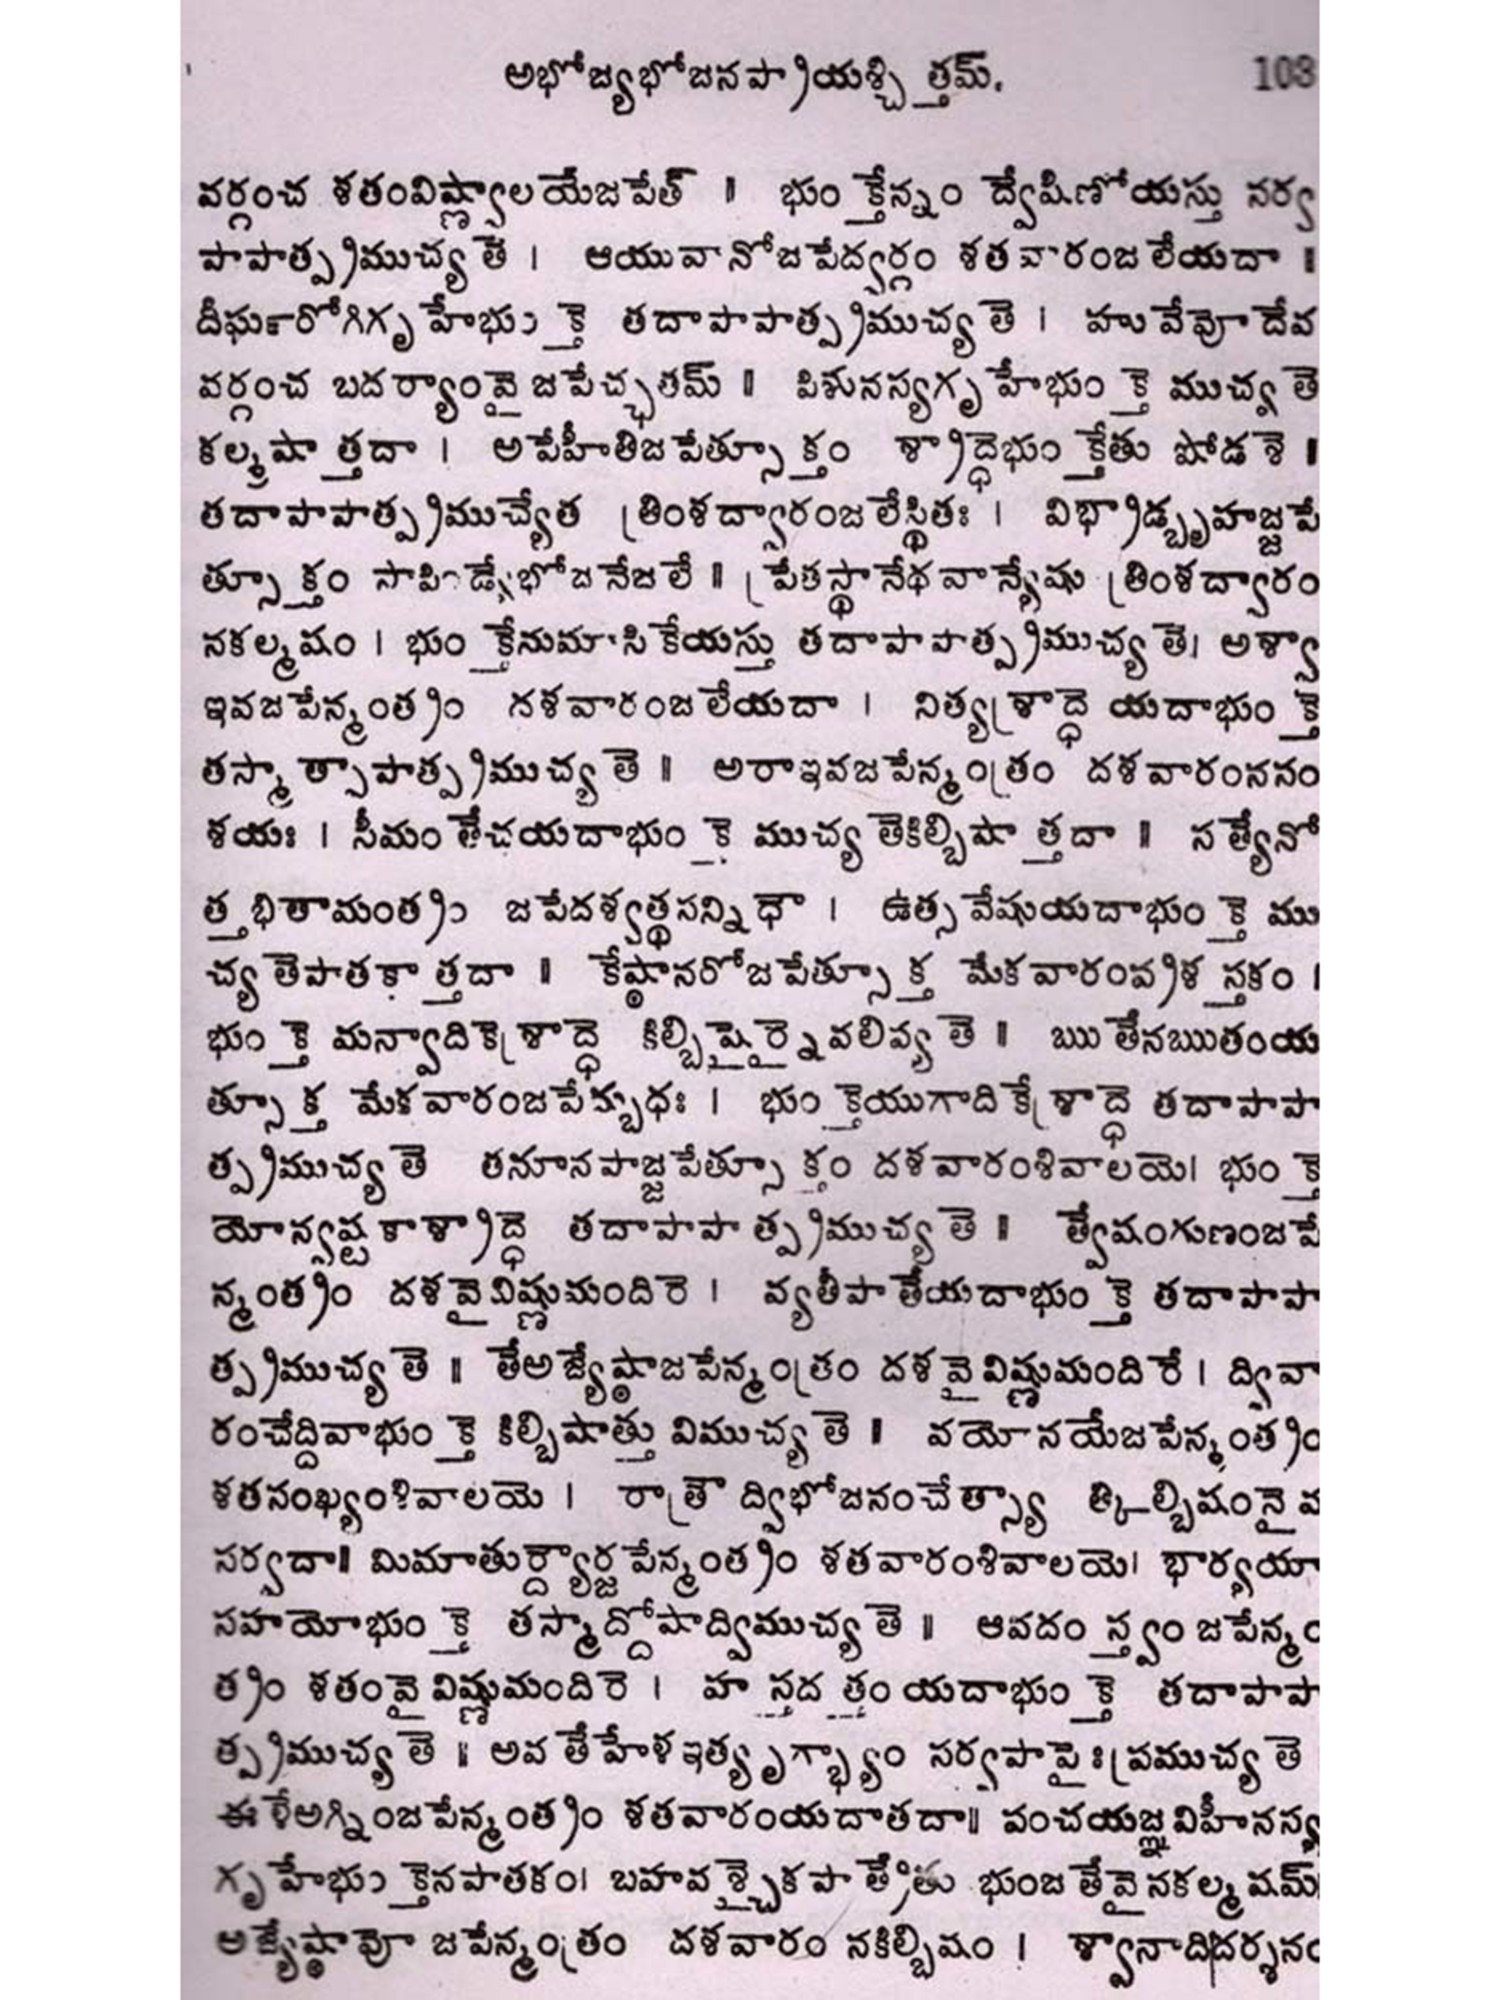 అభోజ్యభోజనప్రాయశ్చిత్తమ్. 103
వర్గంచ శతంవిష్ణ్వాలయేజపేత్ ॥ భుంక్తేన్నం ద్వేషిణోయస్తు సర్వ
పాపాత్ప్రముచ్యతే । ఆయువానోజపేద్వర్గం శతవారంజలేయదా ॥
దీర్ఘరోగిగృహేభుంక్తే తదాపాపాత్ప్రముచ్యతే । హువేవోదేవ
వర్గంచ బదర్యాంవై జపేచ్ఛతమ్ ॥ పిశునస్యగృహేభుంక్తే ముచ్యతే
కల్మషాత్తదా । అపేహీతిజపేత్సూక్తం శ్రాద్ధేభుంక్తేతు షోడశే ॥
తదాపాపాత్ప్రముచ్యేత త్రింశద్వారంజలేస్థితః । విభ్రాడ్బృహజ్జపే
త్సూక్తం సాపిండ్యేభోజనేజలే ॥ ప్రేతస్థానేథవాన్యేషు త్రింశద్వారం
నకల్మషం । భుంక్తేనుమాసికేయస్తు తదాపాపాత్ప్రముచ్యతే। అశ్వా
ఇవజపేన్మంత్రం దశవారంజలేయదా । నిత్యశ్రాద్ధే యదాభుంక్తే
తస్మాత్పాపాత్ప్రముచ్యతే ॥ అరాఇవజపేన్మంత్రం దశవారంనసం
శయః । సీమంతేచయదాభుంక్తే ముచ్యతేకిల్బిషాత్తదా ॥ సత్యేనో
త్తభితామంత్రం జపేదశ్వత్థసన్నిధౌ । ఉత్సవేషుయదాభుంక్తే ము
చ్యతేపాతకాత్తదా ॥ కేష్ఠానరోజపేత్సూక్త మేకవారంప్రశస్తకం ।
భుంక్తే మన్వాదికేశ్రాద్ధే కిల్బిషైర్నైవలిప్యతే ॥ ఋతేనఋతంయ
త్సూక్త మేకవారంజపేద్బుధః । భుంక్తేయుగాదికేశ్రాద్ధే తదాపాపా
త్ప్రముచ్యతే తనూనపాజ్జపేత్సూక్తం దశవారంశివాలయే। భుంక్తే
యోన్వష్టకాశ్రాద్ధే తదాపాపాత్ప్రముచ్యతే ॥ త్వేషంగుణంజపే
న్మంత్రం దశవైవిష్ణుమందిరే । వ్యతీపాతేయదాభుంక్తే తదాపాపా
త్ప్రముచ్యతే ॥ తేఅజ్యేష్ఠాజపేన్మంత్రం దశవైవిష్ణుమందిరే । ద్వివా
రంచేద్దివాభుంక్తే కిల్బిషాత్తు విముచ్యతే ॥ వయోనయేజపేన్మంత్రం
శతసంఖ్యంశివాలయే । రాత్రౌ ద్విభోజనంచేత్స్యా త్కిల్బిషంనైవ
సర్వదా॥ మిమాతుర్ద్యార్జపేన్మంత్రం శతవారంశివాలయే। భార్యయా
సహయోభుంక్తే తస్మాద్దోషాద్విముచ్యతే ॥ ఆవదంస్త్వం జపేన్మం
త్రం శతంవైవిష్ణుమందిరే । హస్తదత్తం యదాభుంక్తే తదాపాపా
త్ప్రముచ్యతే ॥ అవతేహేళఇత్యృగ్భ్యాం సర్వపాపైఃప్రముచ్యతే
ఈళేఅగ్నింజపేన్మంత్రం శతవారంయదాతదా॥ పంచయజ్ఞవిహీనస్య
గృహేభుంక్తేనపాతకం। బహవశ్చైకపాత్రేతు భుంజతేవైనకల్మషమ్।
అజ్యేష్ఠావో జపేన్మంత్రం దశవారం నకిల్బిషం । శ్వానాదిదర్శనం